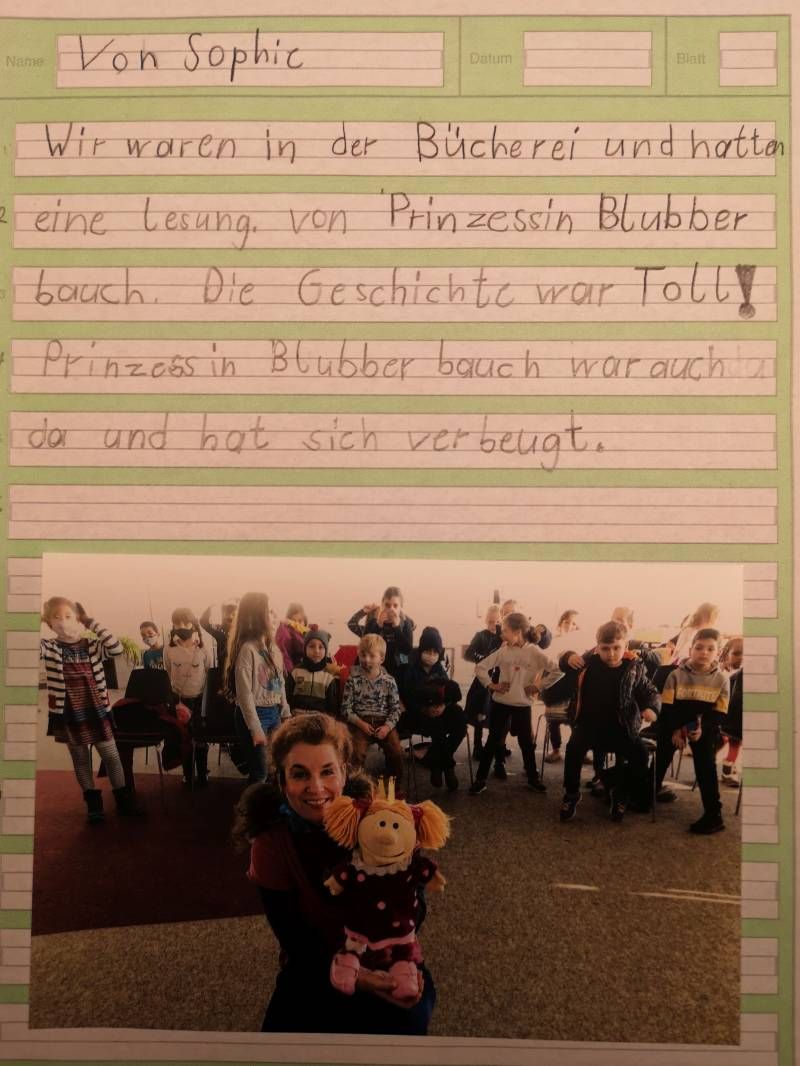 Name Von Sophie Datum Blatt
Wir waren in der Bücherei und hatten
eine Lesung. von Prinzessin Blubber
bauch. Die Geschichte war Toll!
Prinzessin Blubber bauch war auch da
da und hat sich verbeugt.